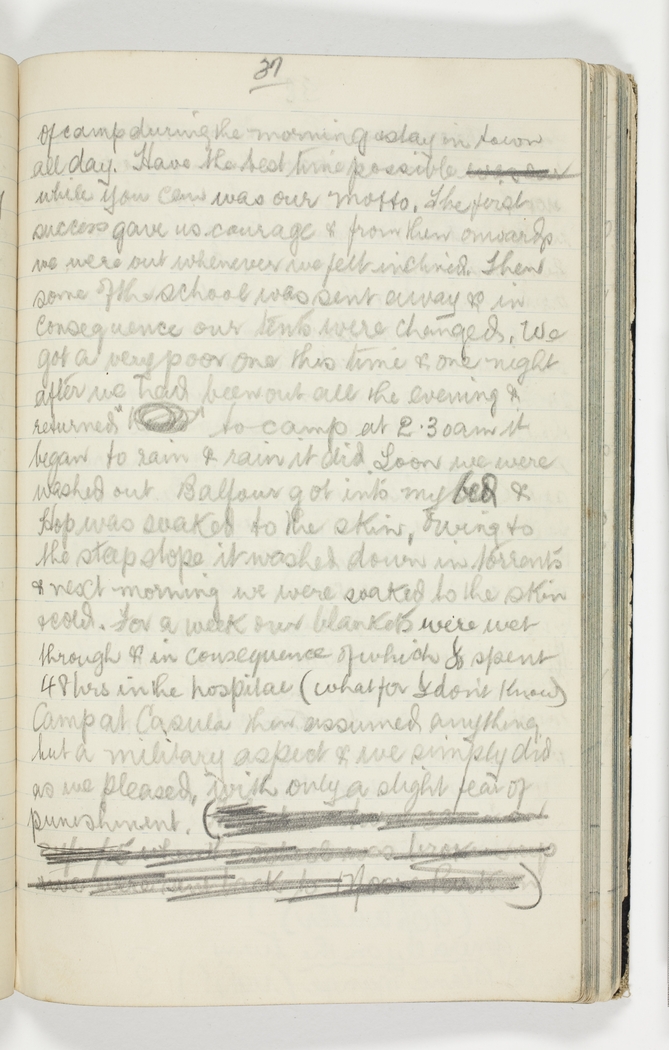 37
of camp during the morning & stay in town
all day. Have the best time possible
while you can was our motto. The first
success gave us courage & from then onwards
we were out whenever we felt inclined. Then
some of the school was sent away & in
consequence our tents were changed. We
got a very poor one this time & one night
after we had been out all the evening &
returned " " to camp at 2.30am it
began to rain & rain it did Soon we were
washed out. Balfour got into my bed &
Hop was soaked to the skin, Owing to
the steep slope it washed down in torrents
& next morning we were soaked to the skin
& cold. For a week our blankets were wet
through & in consequence of which I spent
48 hrs in the hospital (what for I don't know)
Camp at Casula then assumed anything
but a military aspect & we simply did
as we pleased, with only a slight fear of
punishment. (
when school was broken up
& we were sent back to Moore Park )